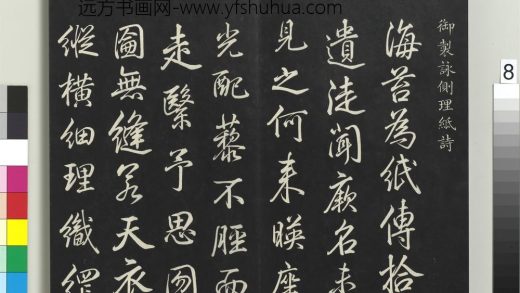 远方书画网-www.yfshuhua.com
御製詠側理紙詩
海苔為紙傳拾
遺徒聞厥名未
見之何来暎座
光配藜不脛而
走繄予思囫
圇無縫若天衣
縱横細理織網
8